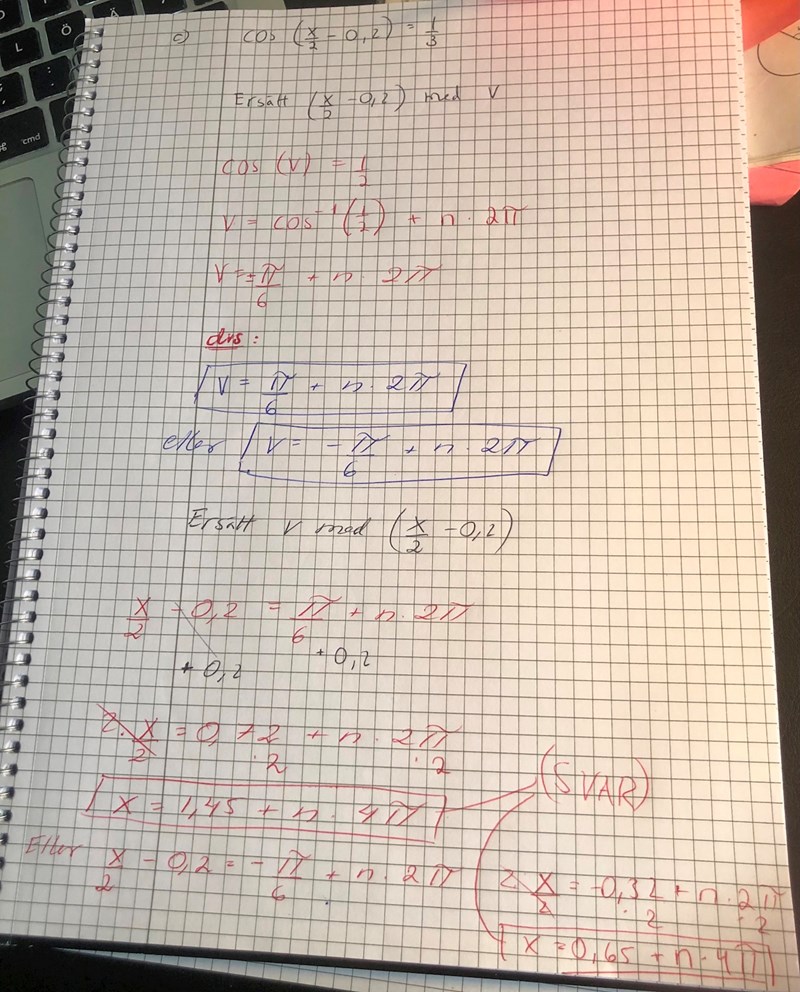 c) cos (x/2 - 0,2) = 1/3
Ersätt (x/2 - 0,2) med V
cos (V) = 1/2
V = cos⁻¹(1/2) + n · 2π
V = ± π/6 + n · 2π
dvs:
V = π/6 + n · 2π
eller V = - π/6 + n · 2π
Ersätt V med (x/2 - 0,2)
x/2 - 0,2 = π/6 + n · 2π
+ 0,2 + 0,2
2 · x/2 = 0,72 + n · 2π
· 2 · 2
x = 1,45 + n · 4π
(SVAR)
Eller x/2 - 0,2 = - π/6 + n · 2π
2 · x/2 = -0,32 + n · 2π
· 2 · 2
x = 0,65 + n · 4π
L
Ö
cmd